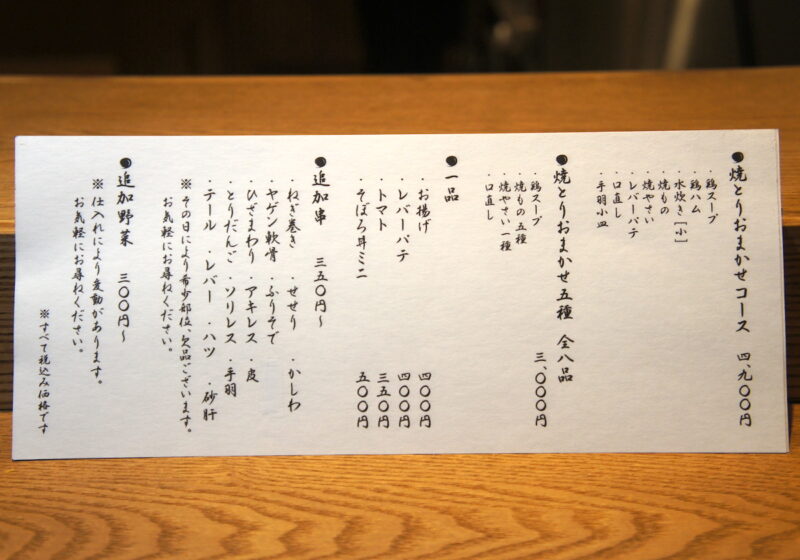 ●焼とりおまかせコース 四、九〇〇円
・鶏スープ
・鶏ハム
・水炊き[小]
・焼もの
・焼やさい
・レバーパテ
・口直し
・手羽小皿
●焼とりおまかせ五種 全八品
三、〇〇〇円
・鶏スープ
・焼もの五種
・焼やさい一種
・口直し
●一品
・お揚げ 四〇〇円
・レバーパテ 四〇〇円
・トマト 三五〇円
・そぼろ丼ミニ 五〇〇円
●追加串 三五〇円〜
・ねぎ巻き ・せせり ・かしわ
・ヤゲン軟骨 ・ふりそで
・ひざまわり ・アキレス ・皮
・とりだんご ・ソリレス ・手羽
・テール ・レバー ・ハツ ・砂肝
※その日により希少部位、欠品ございます。
お気軽にお尋ねください。
●追加野菜 三〇〇円〜
※仕入れにより変動があります。
お気軽にお尋ねください。
※すべて税込み価格です